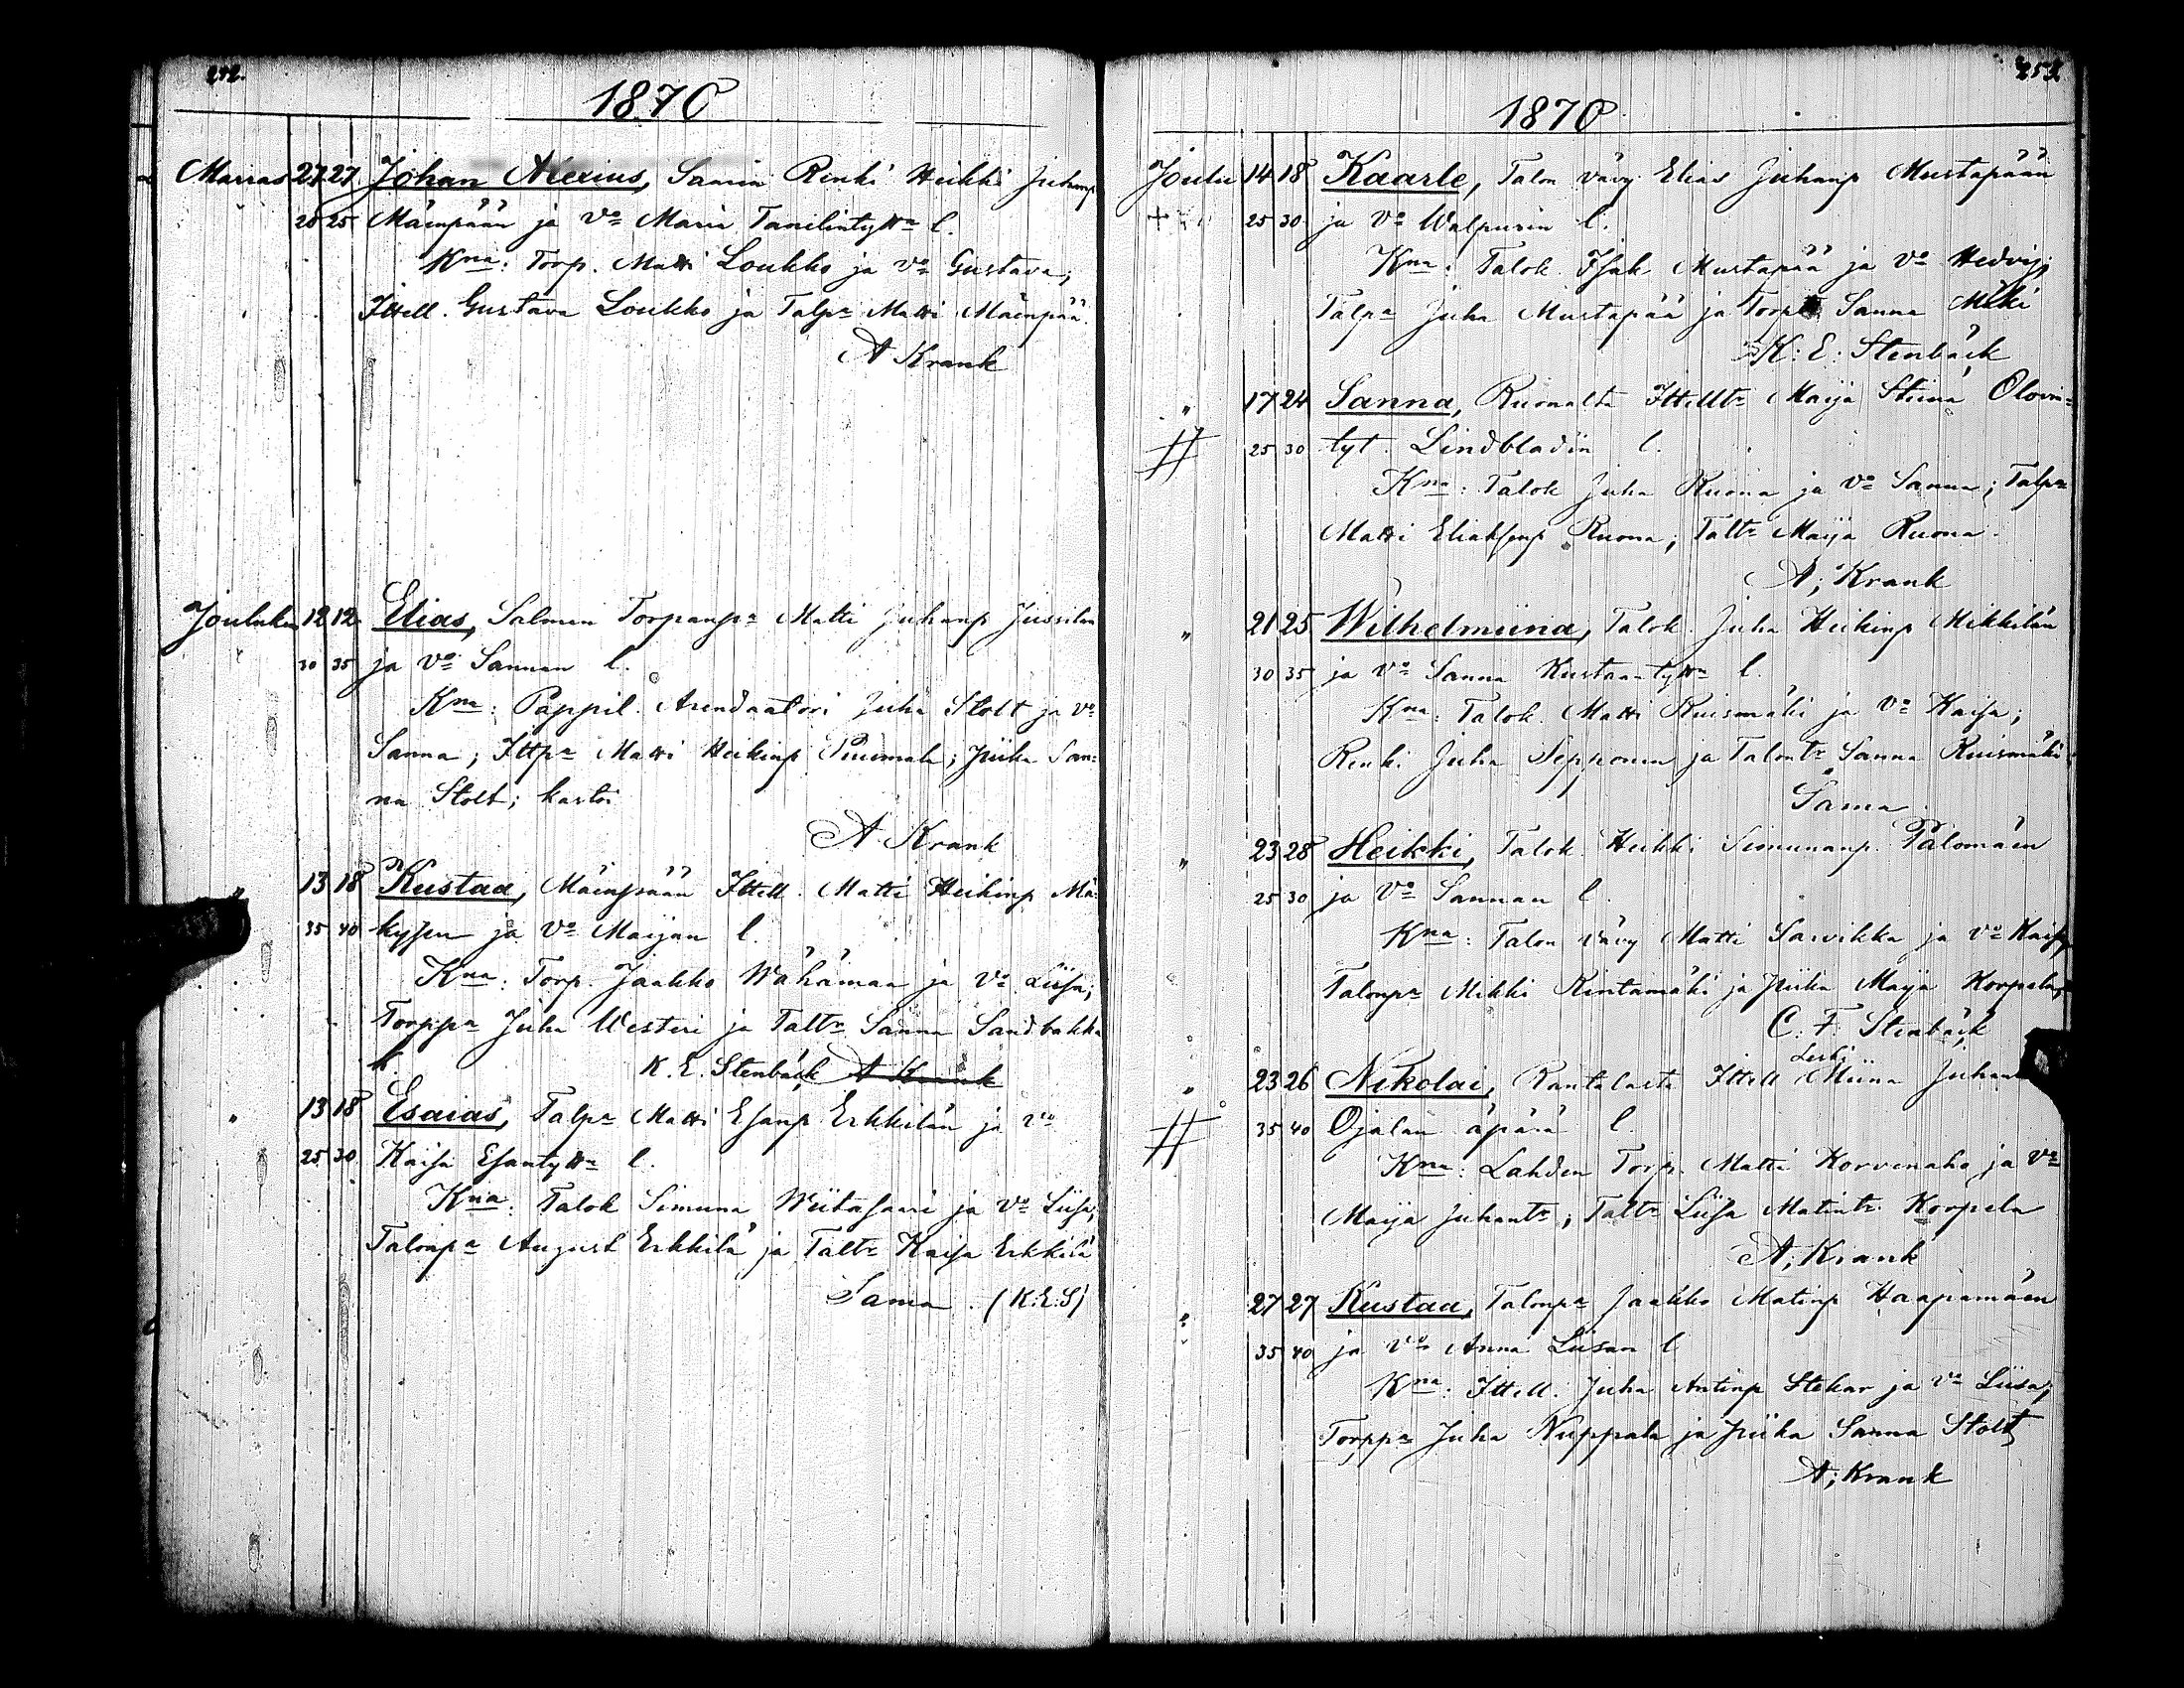 252.
1870
Marras 27 27 Johan Alexius, Saarin Renki Heikki Juhanp
20 25 Mäenpään ja Vo Maria Tanelintyttn l.
Kna: Torp. Matti Loukko ja Vo Gustava;
Ittell. Gustava Loukko ja Talpa Matti Mäenpää.
A Krank
Jouluku 12 12 Elias, Salmen Torpanpa Matti Juhanp Jussilan
30 35 ja Vo Sannan l.
Kna: Pappil. Arendaatori Juha Stolt ja Vo
Sanna; Ittpa Matti Heikinp Puumala; Piika San-
na Stolt; kastoi
A Krank
" 13 18 Kustaa, Mäenpään Ittell. Matti Heikinp Mä-
35 40 kysen ja Vo Maijan l.
Kna: Torp. Jaakko Wähämaa ja Vo Liisa;
Torppa Juha Westeri ja Taltr Sanna Sandbakka
k. K. E. Stenbäck A Krank
" 13 18 Esaias, Talpa Matti Esanp Erkkilän ja Vo
25 30 Kaisa Esantyttn l.
Kna: Talok Simuna Wiitasaari ja Vo Liisa;
Talonpa August Erkkilä ja Taltr Kaisa Erkkilä
Sama. (K:E:S)
253
1870
Joulu 14 18 Kaarle, Talon vävy Elias Juhanp Mustapään
+ 25 30 ja Vo Walpurin l.
Kna: Talok. Isak Mustapää ja Vo Hedvig;
Talpa Juha Mustapää ja Torptr Sanna Mäki
K: E: Stenbäck
" 17 24 Sanna, Ruonalta Ittelltr Maija Stiina Olovin-
# 25 30 tyt. Lindbladin l.
Kna: Talok Juha Ruona ja Vo Sanna; Talpa
Matti Eliaksenp Ruona; Taltr Maija Ruona.
A; Krank
" 21 25 Wilhelmiina, Talok. Juha Heikinp Mikkilän
30 35 ja Vo Sanna Kustaantyttn l.
Kna: Talok. Matti Ruismäki ja Vo Kaisa;
Renki Juha Sepponen ja Talontr Sanna Ruismäki
Sama
" 23 28 Heikki, Talok. Heikki Simunanp. Palomäen
25 30 ja Vo Sannan l.
Kna: Talon vävy Matti Sarvikka ja Vo Kaisa,
Talonpa Mikki Rintamäki ja Piika Maija Korpela,
C. F. Stenbäck
Leski
" 23 26 Nikolai, Rantalasta Ittell Miina Juhan
# 35 40 Ojalan äpärä l.
Kna: Lahden Torp. Matti Korvenaho ja Vo
Maija Juhantr; Taltr Liisa Matintr. Korpela
A; Krank
" 27 27 Kustaa, Talonpa Jaakko Matinp Haapamäen
35 40 ja Vo Anna Liisan l
Kna: Ittell. Juha Antinp Stekar ja Vo Liisa;
Torppa Juha Nuppala ja Piika Sanna Stolt
A; Krank